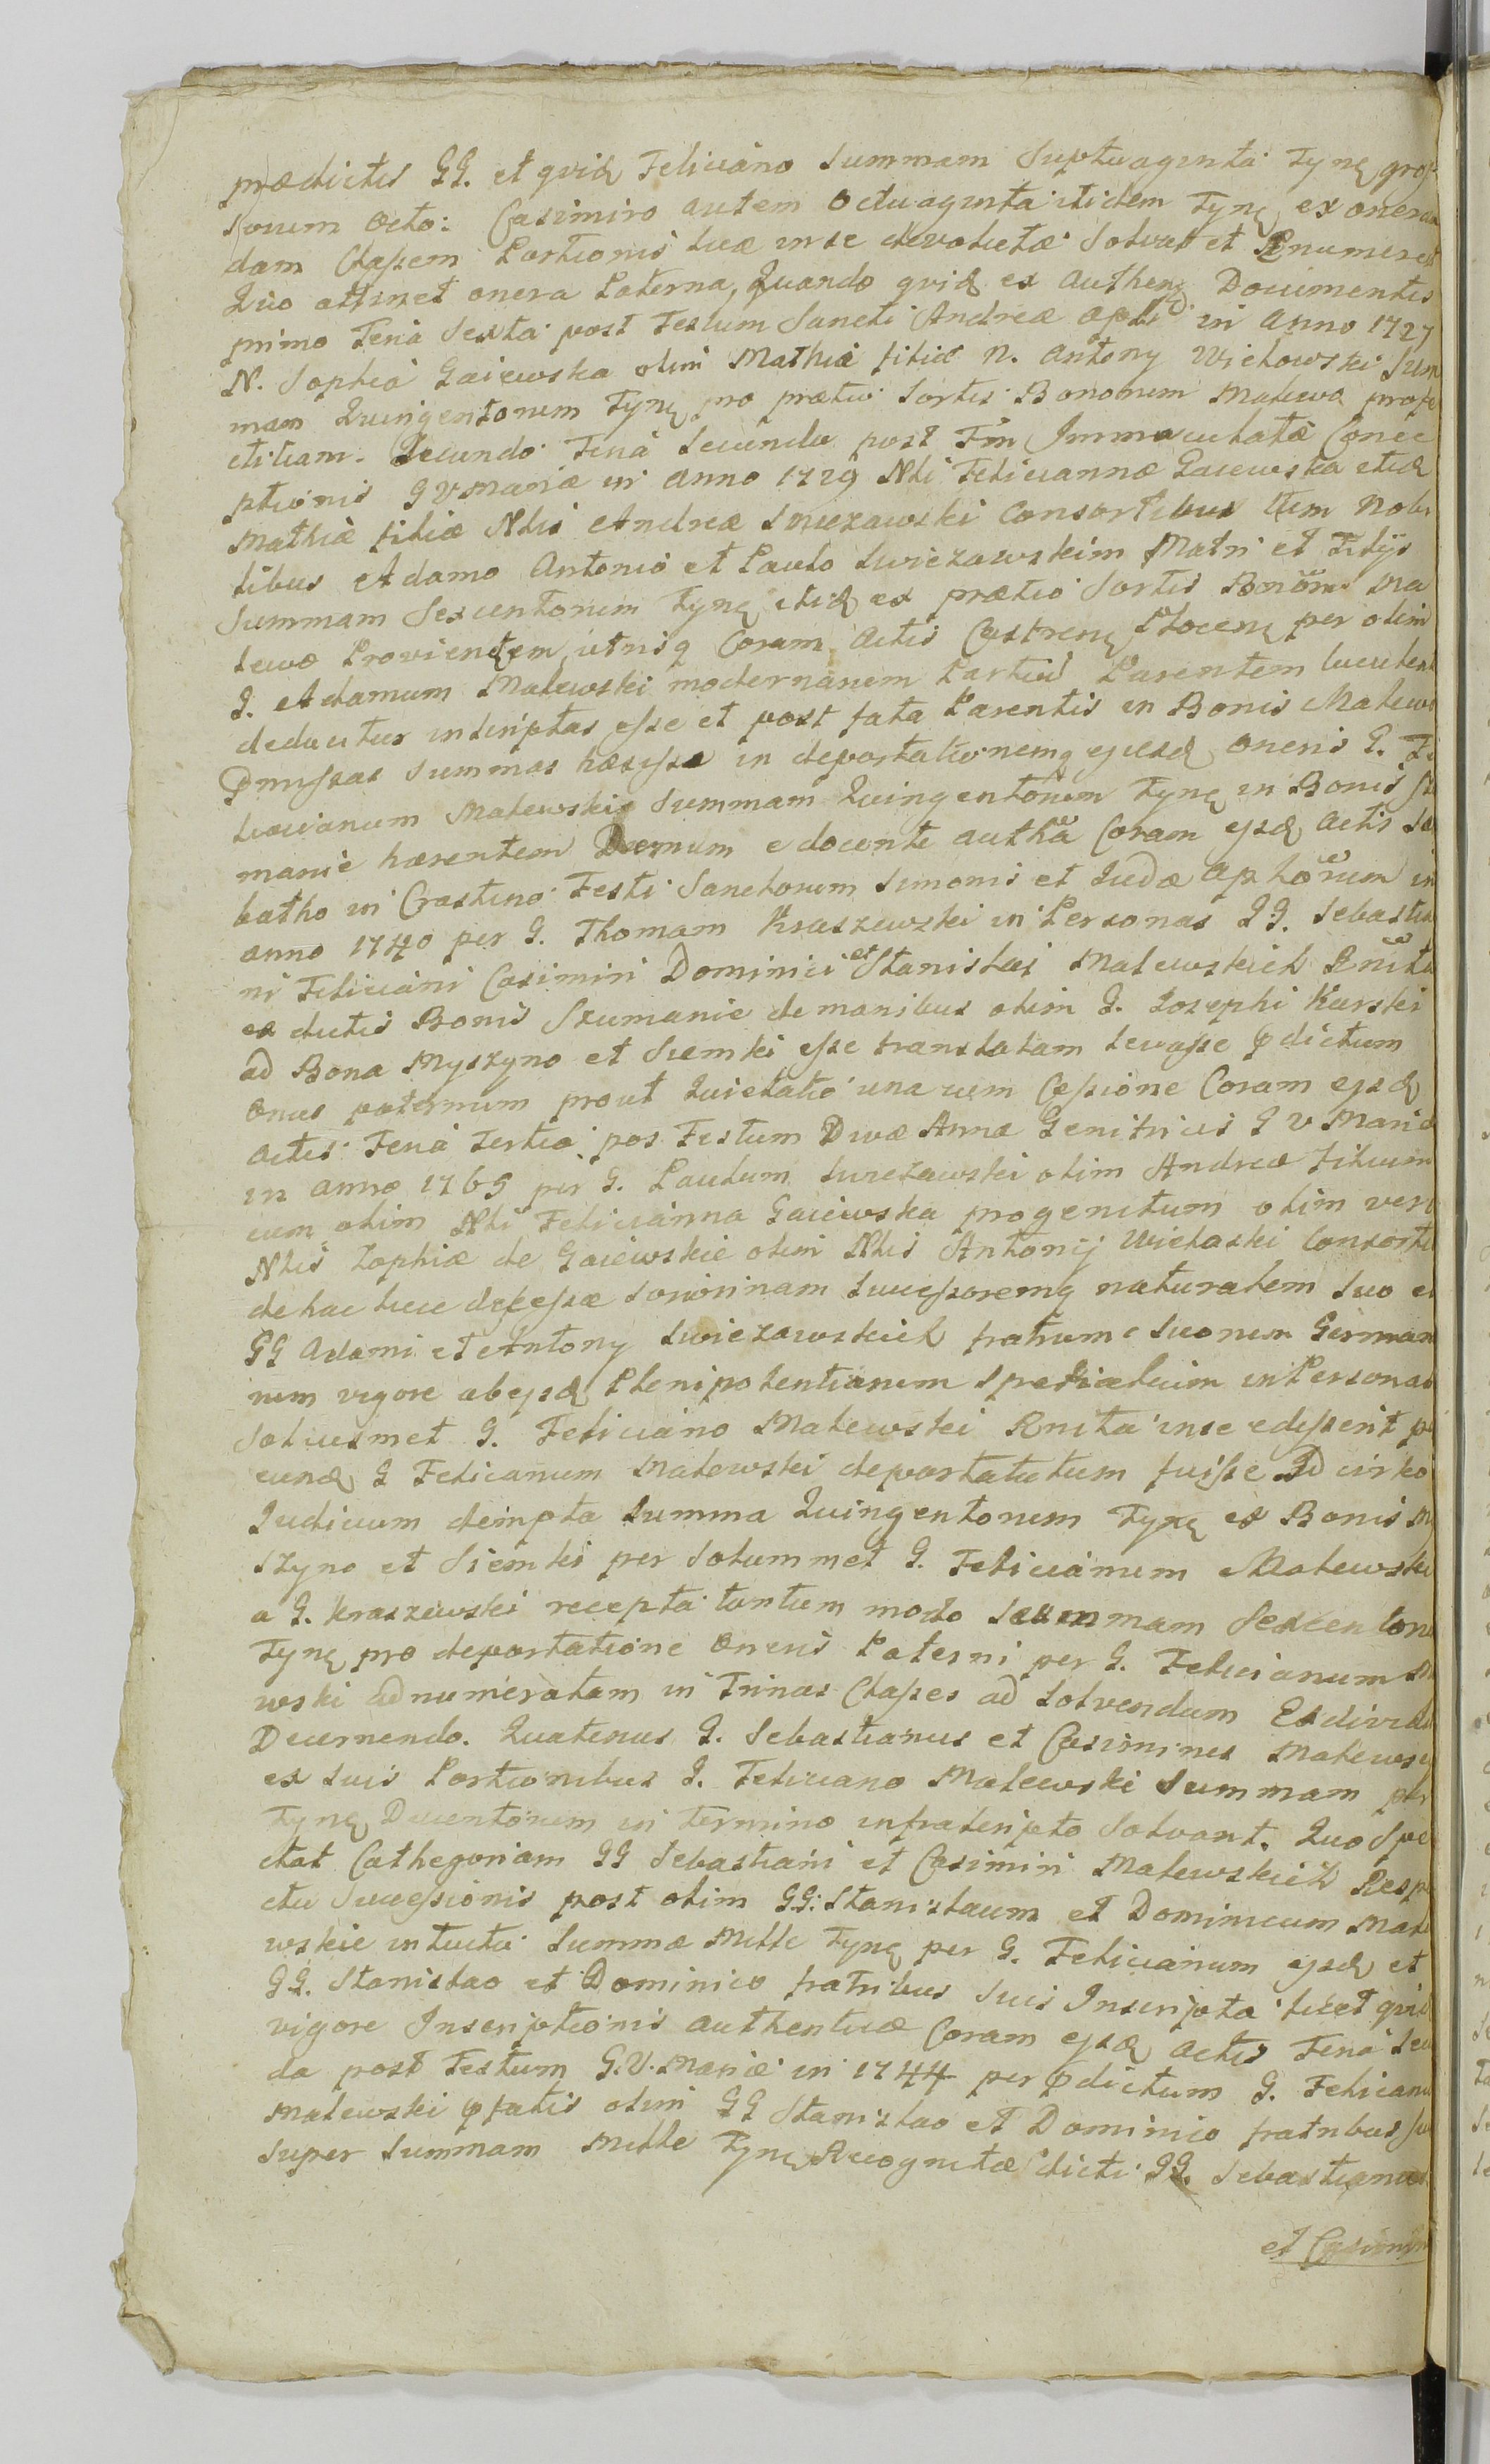 prædictis GG. et quiđ Feliciano Summam Septuaginta Fɫynę gros
sorum octo: Casimiro autem Octuaginta itidem Fɫynę, ex oneran
dam Classem Portionis suæ in se devolutæ Solvat et Pnumeret
Quo attinet onera Paterna, Quando quiđ ex Authenę Documentis
primo Feria Sexta post Festum Sancti Andreæ Apłi in Anno 1727
N. Sophia Gaiewska olim Mathiæ filia N. Antony Wichowski Sum
mam Quingentorum Fɫynę pro prætio Sortis Bonorum Malewo profe
ctitiam. Secundo Feria Secunda post Fm Immaculatæ Conce
ptionis G V Mariæ in Anno 1729 Nłi Felicianna Gaiewska etiđ
Mathiæ filiæ Nłis Andreæ Swiezawski Consortibus tum Nobi
libus Adamo Antonio et Paulo Swiezawskim Matri et Filijs
Summam Sexcentorum Fɫynę itiđ ex prætio Sortis Bonorum Ma
lewo Provientem utrisq Coram Actis Castrenę Płocenę per olim
G. Adamum Malewski modernarum Partiu Parentem luculent
deducitur inscriptas esse et post fata Parentis in Bonis Malewo
Pmissas Summas hæsisse in deportationemq ejusđ oneris G. Fe
licianum Malewskie Summam Quingentorum Fɫynę in Bonis Szu
manie hærentem Demum edocente autha Coram ejsđ Actis Sab
batho in Crastino Festi Sanctorum Simonis et Judæ Aphorum in
anno 1740 per G. Thomam Kraszewski in Personas GG. Sebastia
ni Feliciani Casimiri Dominici et Stanislai Malewskich Rnita
ex dictis Bonis Szumanie de manibus olim G. Josephi Karski
ad Bona Myszyno et Siemki esse translatam levasse pdictum
Onus paternum prout Quietatio una cum Cessione Coram ejsđ
Actis Feria Tertia pos Festum Divæ Annæ Genitricis G V Mariæ
in anno 1765 per G. Paulum Swiezawski olim Andreæ Filium
cum olim Nłi Felicianna Gaiewska progenitum olim vero
Nłis Zophiæ de Gaiewskie olim Nłis Antonij Wichoski Consorti
de hac luce decessæ Sororinam Successoremq naturalem suo et
GG Adami et Antony Swiezawskich fratrum Suorum Germano
rum vigore ab ejsđ Plenipotentiarum Specialium in Personas
Soliusmet G. Feliciano Malewski Rnita in se edisserit p
eunđ G Felicanum Malewski deportatutum fuisse Id cirko
Judicium dempta Summa Quingentorum Fɫynę ex Bonis My
szyno et Siemki per Solummet G. Felicianum Malewski
a G. Kraszewski recepta tantum modo Summam Sexcentoru
Fɫynę pro deportatione Oneris Paterni per G. Felicianum Ma
wski adnumeratam in Trinas Classes ad Solvendum Exdivid
Decernendo. Quatenus G. Sebastianus et Casimirus Malewsc
ex Suis Portionibus G. Feliciano Malewski Summam płr
Fɫynę Ducentorum in termino infrascripto Solvant. Quo Spe
ctat Cathegoriam GG Sebastiani et Casimiri Malewskich Respe
ctu Successionis post olim GG: Stanislaum et Dominicum Male
wskie intuitu Summæ Mille Fɫynę per G. Felicianum ejsđ et
GG. Stanislao et Dominico fratribus Suis Inscripta licet quid
vigore Inscriptionis authenticæ Coram ejsđ Actis Feria Secu
da post Festum G.V. Mariæ in 1744 per pdictum G. Felicanu
Malewski pfatis olim GG Stanislao et Dominico fratribus su
Super Summam Mille Fɫynę Recognitæ dicti GG. Sebastianus
et Casimir